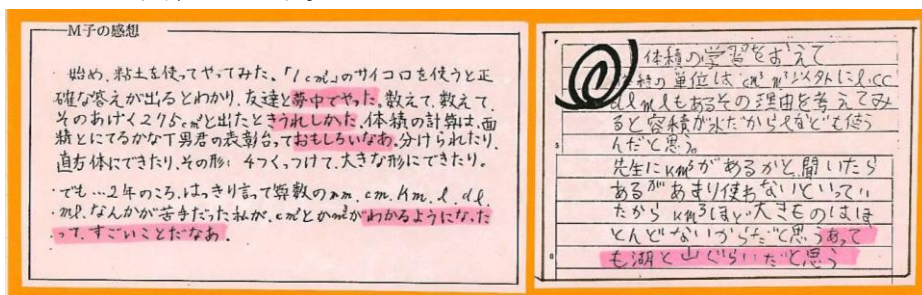 M子の感想
始め、粘土を使ってやってみた。「1cm³」のサイコロを使うと正
確な答えが出るとわかり、友達と夢中でやった。数えて、数えて、
そのあげく275cm³と出たときうれしかった。体積の計算は、面
積とにてるかな 丁男君の表彰台っておもしろいなあ。分けられたり、
直方体にできたり、その形: 4つくっつけて、大きな形にできたり。
でも…2年のころ、はっきり言って算数のmm. cm. km. l. dl.
ml. なんかが苦手だった私が、cm³とかm³がわかるようになった
って、すごいことだなあ。
体積の学習をおえて
の単位は cm³ m³ イガイにl.cc
dl mlもあるその理由を考えてみ
ると容積が水だからlなども使う
んだと思う。
先生にkm³があるかと聞いたら
あるがあまり使わないといってい
たから km³ほど大きものはほ
とんどないからだと思うあって
も湖と山ぐらいだと思う